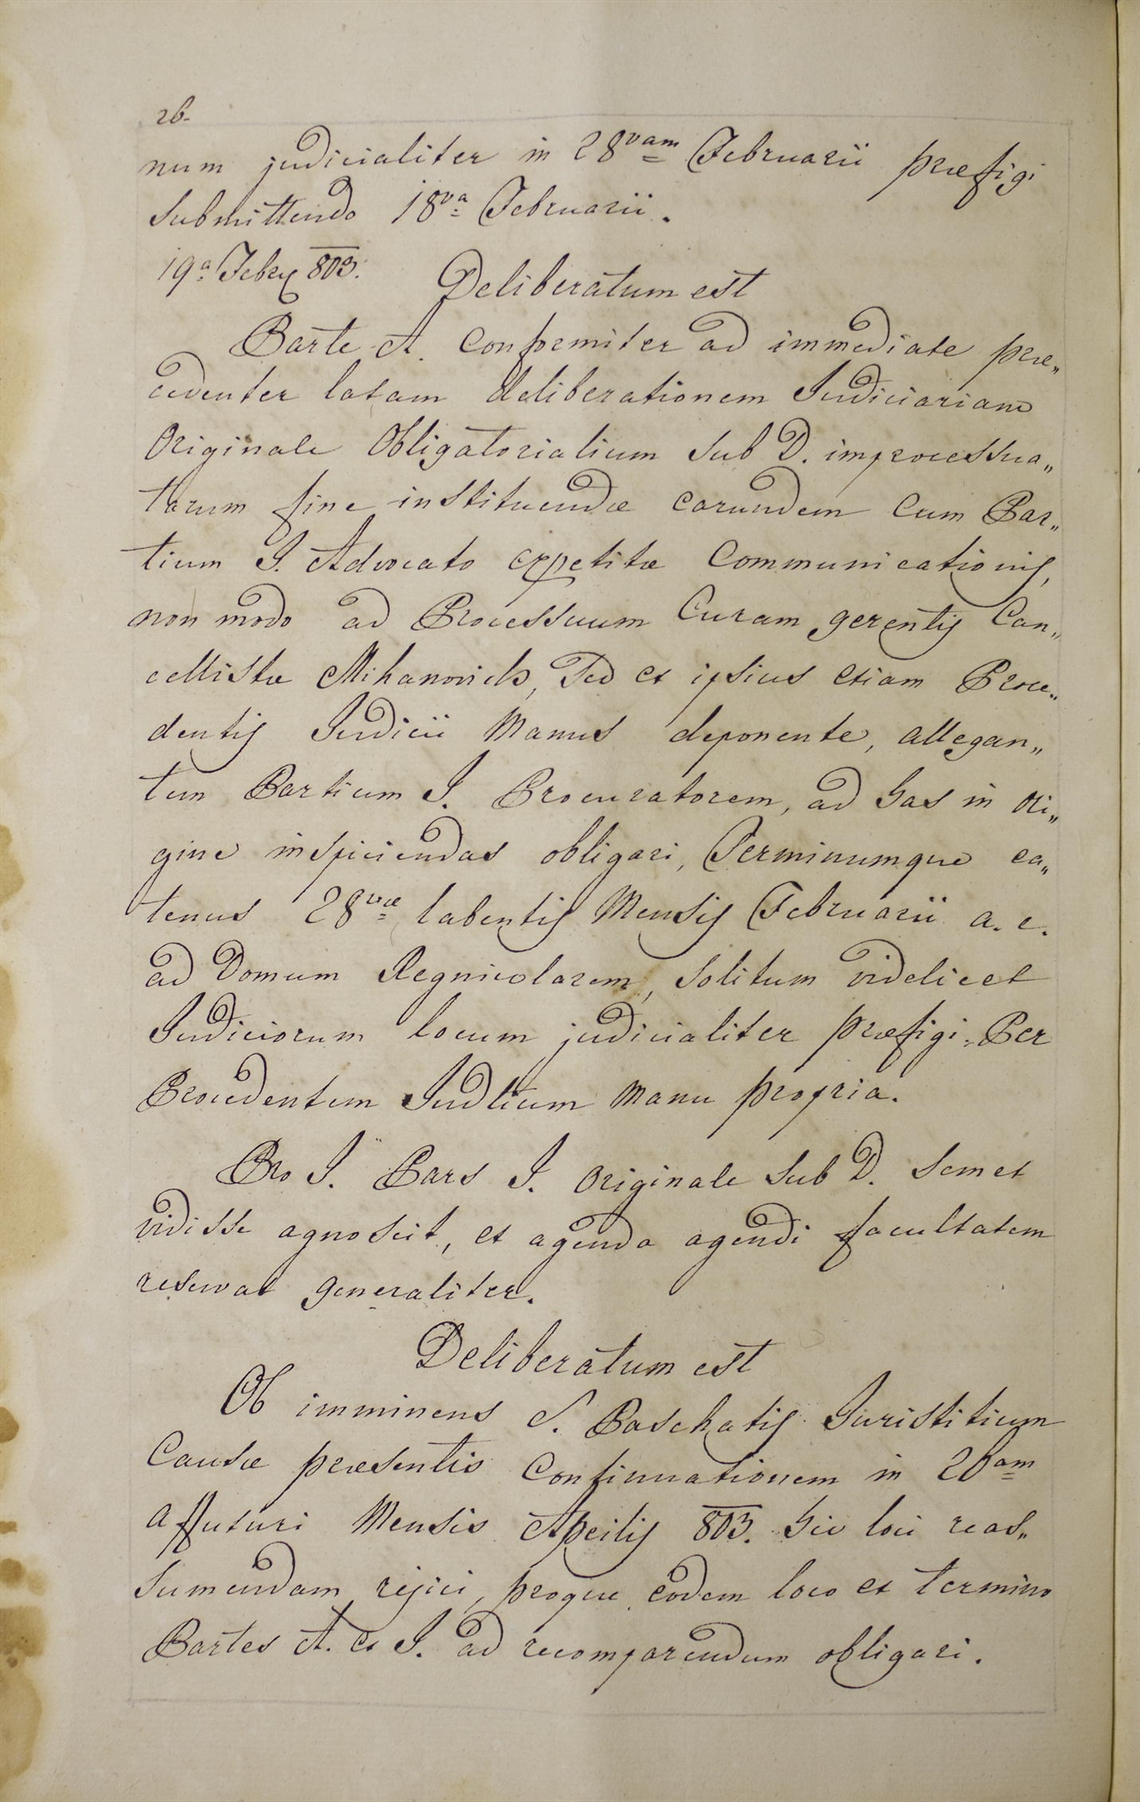 26.
num judicialiter in 28vam Februarii præfigi
submittendo 18va Februarii.
19a Febr 803. Deliberatum est
Parte A. conformiter ad immediate præ„
cedenter latam deliberationem Judiciariam
Originale Obligatorialium sub D. improcessua„
tarum fine instituendæ earundem cum Par„
tium I. Advocato expetitæ Communicationis,
non modo ad Processuum Curam gerentis Can„
cellistæ Mihanovich, Sed et ipsius etiam Proce„
dentis Judicii Manus deponente, allegan„
tem Partium I. Procuratorem, ad has in Ori„
gine inspiciendas obligari, Terminumque ea„
tenus 28væ labentis Mensis Februarii a. c.
ad Domum Regnicolarem, solitum videlicet
Judiciorum locum judicialiter præfigi. Per
Procedentem Judlium manu propria.
Pro I. Pars I. Originale sub D. semet
vidisse agnoscit, et agenda agendi facultatem
reservat generaliter.
Deliberatum est
Ob imminens S. Paschatis Juristitium
Causæ præsentis Continuationem in 20am
affuturi Mensis Aprilis 803. hic loci reas„
sumendam rejici, proque eodem loco et termino
Partes A. et I. ad recomparendum obligari.